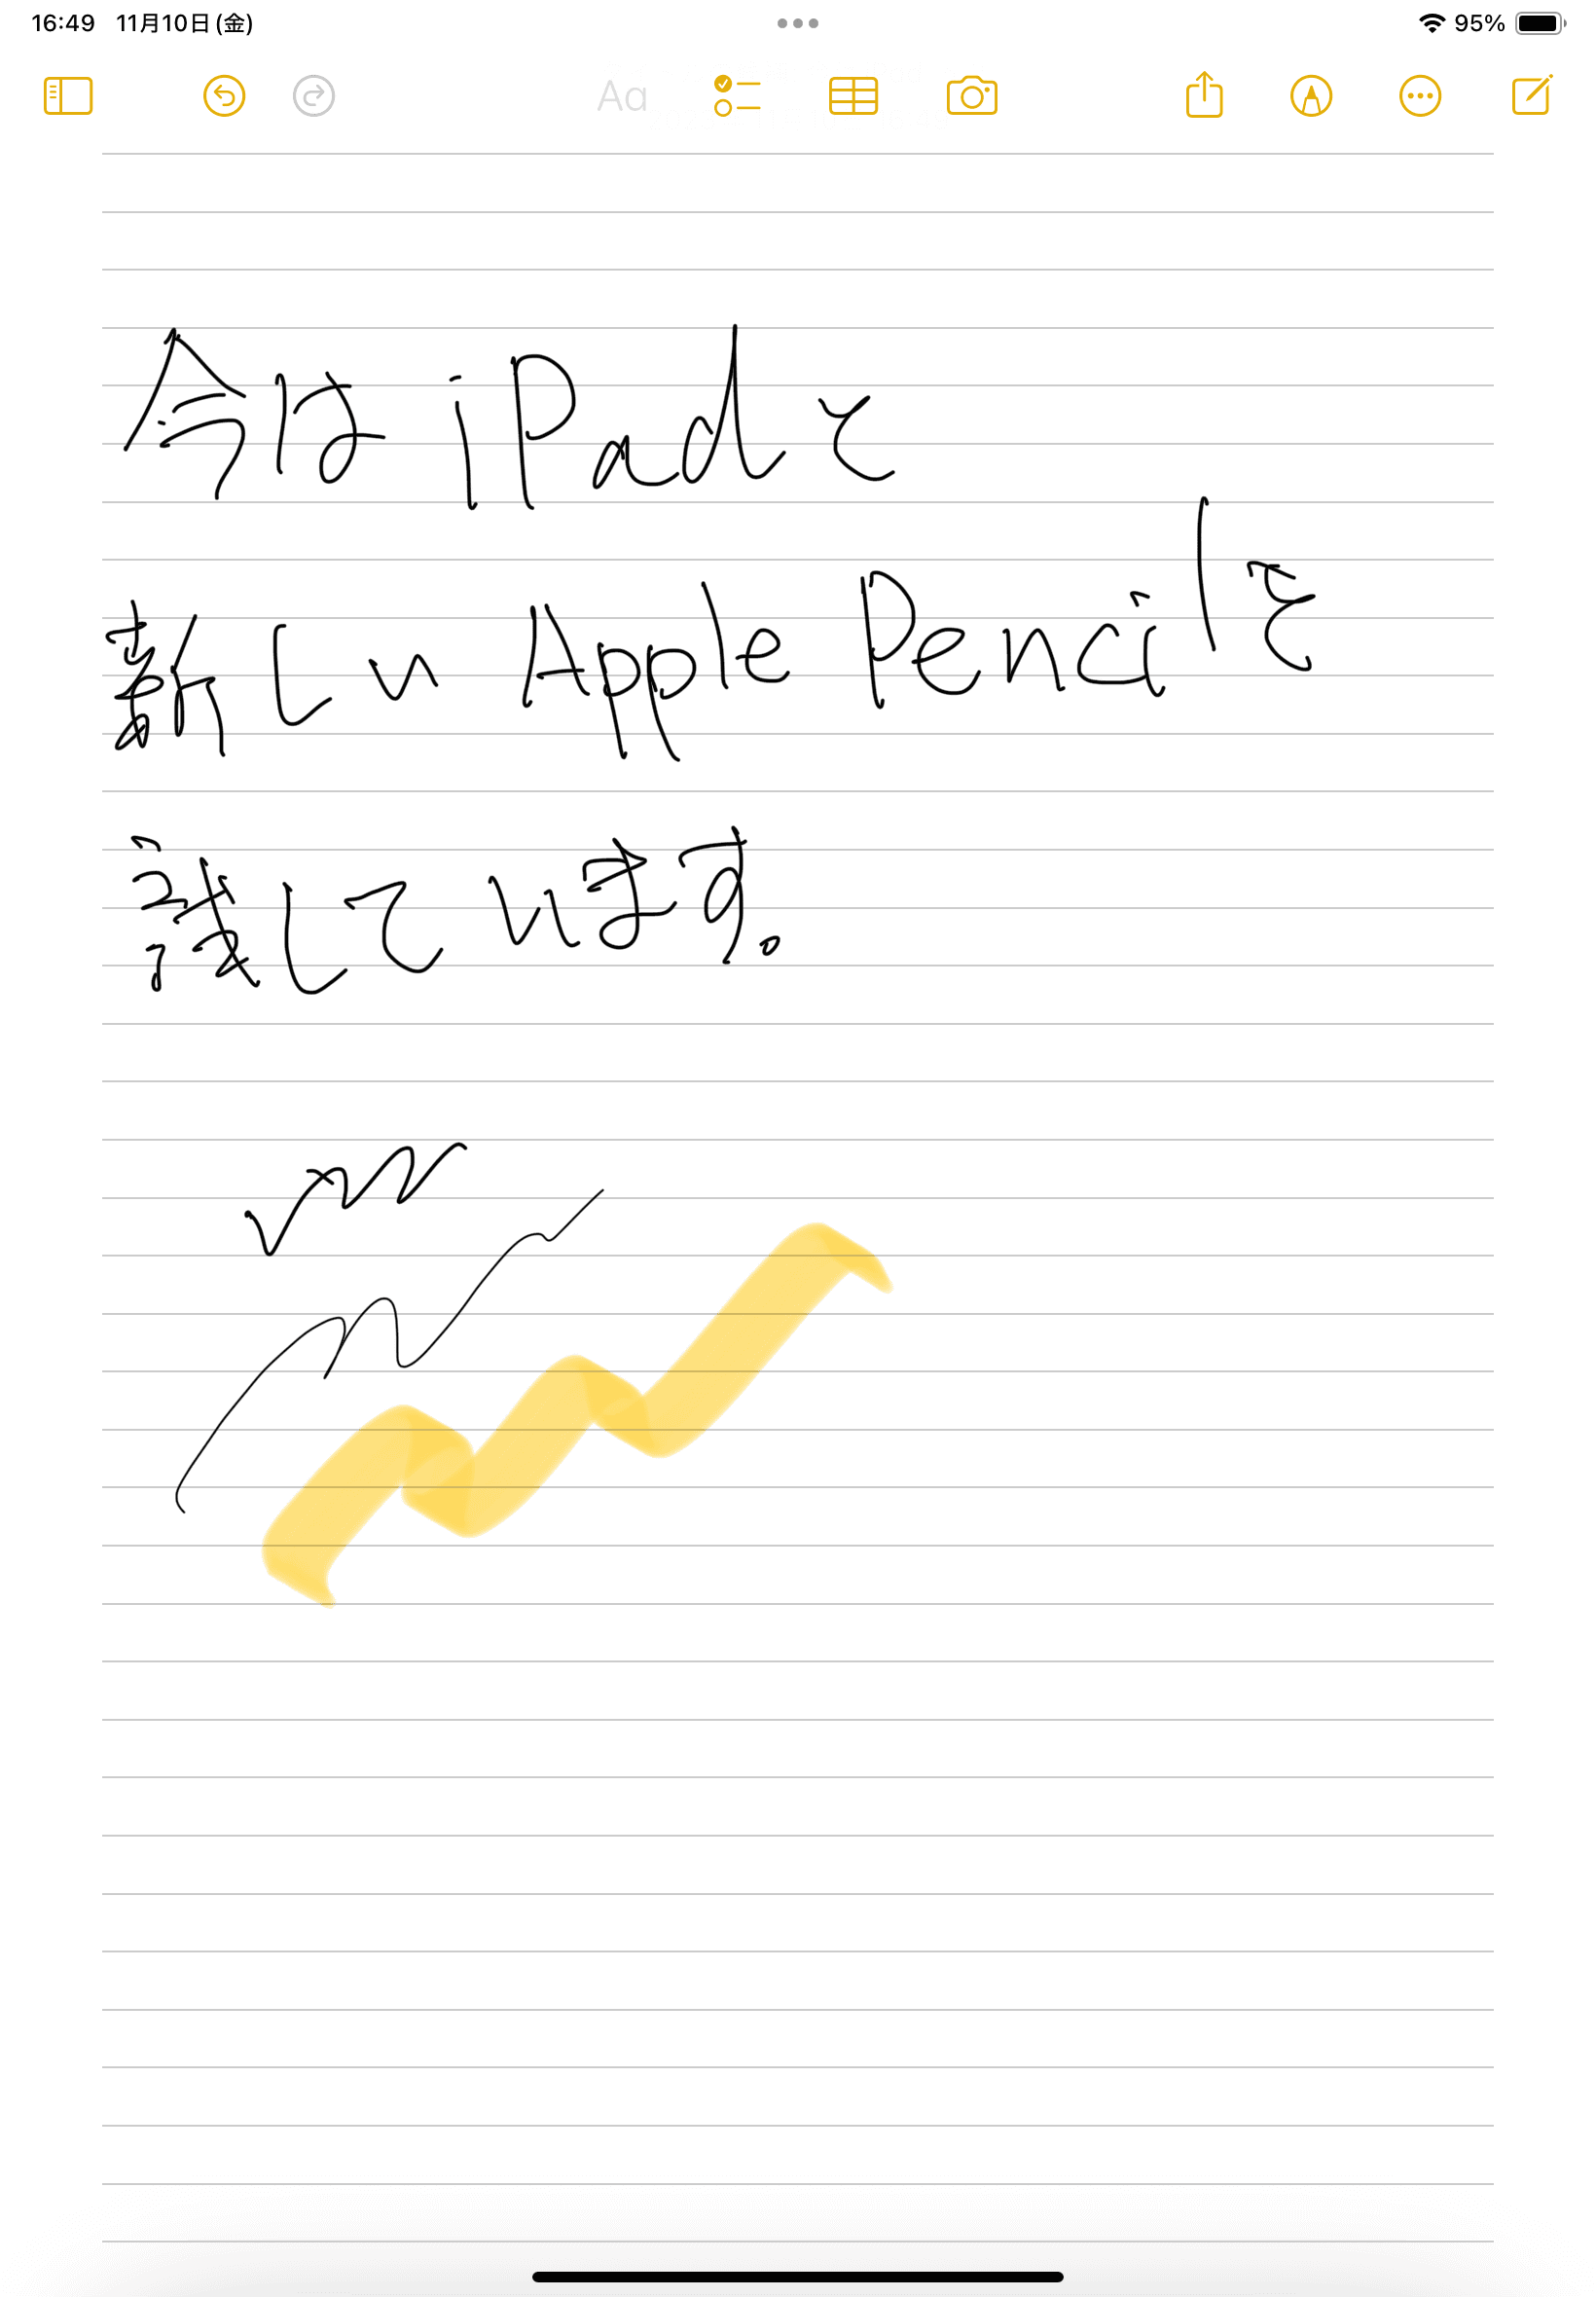 16:49 11月10日(金) 95%
Aa
今は iPadと
新しい Apple Pencilを
試しています。